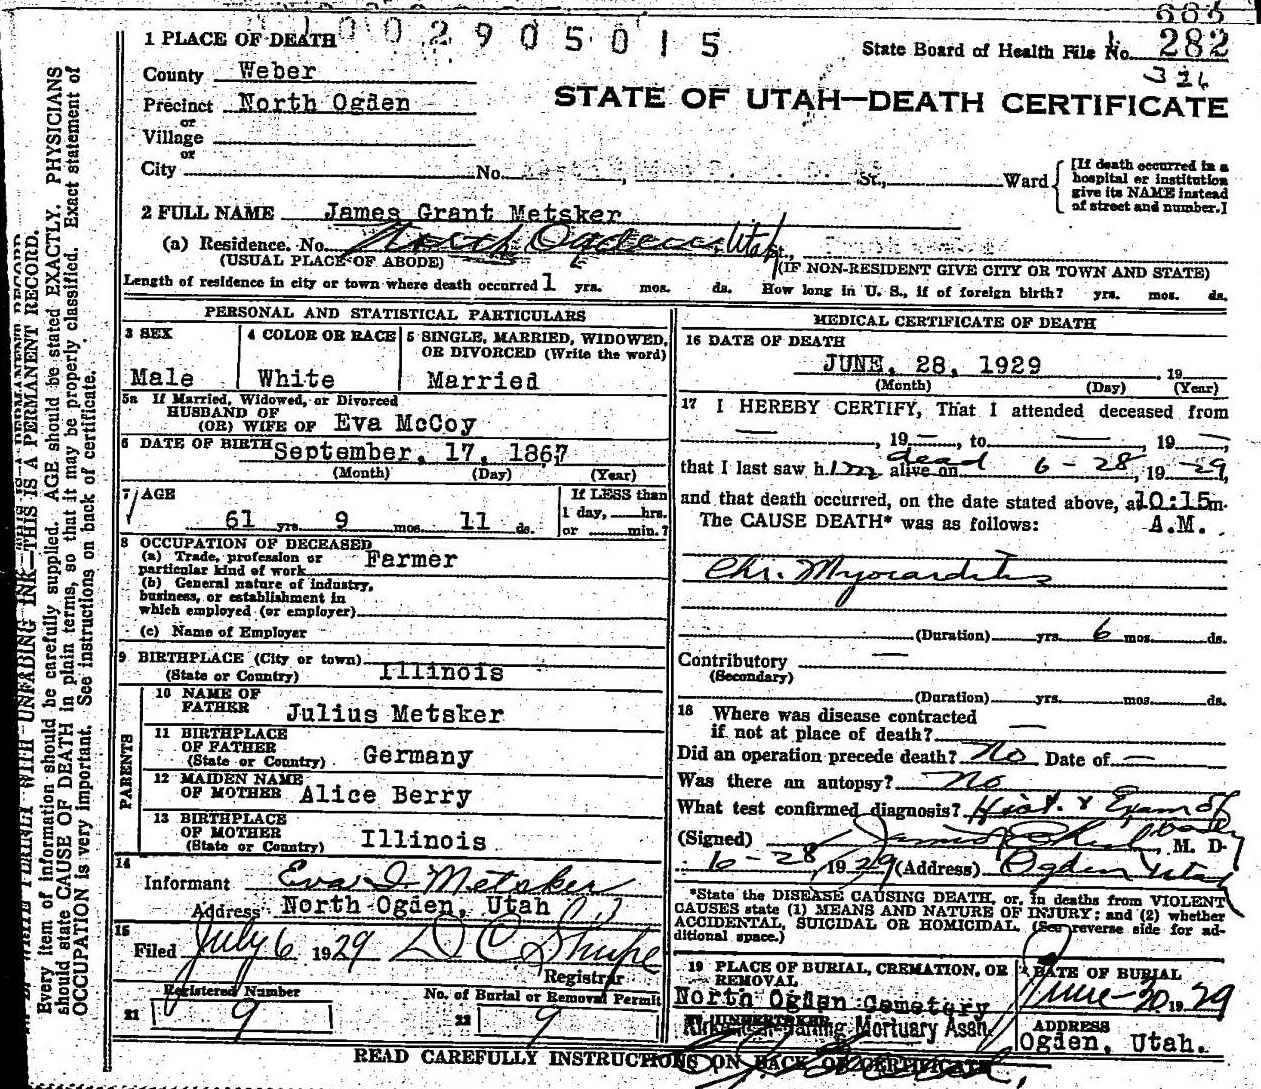 1002905015
1 PLACE OF DEATH
State Board of Health File No. 282
County Weber
Precinct North Ogden
STATE OF UTAH—DEATH CERTIFICATE
or
Village
or
City No. , St., Ward {[If death occurred in a hospital or institution give its NAME instead of street and number.]
2 FULL NAME James Grant Metsker
(a) Residence. No. North Ogden, Utah,
(USUAL PLACE OF ABODE) (IF NON-RESIDENT GIVE CITY OR TOWN AND STATE)
Length of residence in city or town where death occurred 1 yrs. mos. ds. How long in U. S., if of foreign birth? yrs. mos. ds.
PERSONAL AND STATISTICAL PARTICULARS
3 SEX
Male
4 COLOR OR RACE
White
5 SINGLE, MARRIED, WIDOWED,
OR DIVORCED (Write the word)
Married
5a If Married, Widowed, or Divorced
HUSBAND OF
(OR) WIFE OF Eva McCoy
6 DATE OF BIRTH September, 17, 1867
(Month) (Day) (Year)
7 AGE
61 yrs. 9 mos. 11 ds.
If LESS than
1 day, hrs.
or min.?
8 OCCUPATION OF DECEASED
(a) Trade, profession or
particular kind of work Farmer
(b) General nature of industry,
business, or establishment in
which employed (or employer)
(c) Name of Employer
9 BIRTHPLACE (City or town)
(State or Country) Illinois
PARENTS
10 NAME OF
FATHER Julius Metsker
11 BIRTHPLACE
OF FATHER
(State or Country) Germany
12 MAIDEN NAME
OF MOTHER Alice Berry
13 BIRTHPLACE
OF MOTHER
(State or Country) Illinois
14
Informant Eva I. Metsker
Address North Ogden, Utah
15
Filed July 6 1929 D C Shupe
Registrar
Registered Number
21 9
No. of Burial or Removal Permit
22 9
MEDICAL CERTIFICATE OF DEATH
16 DATE OF DEATH
JUNE, 28, 1929 , 19
(Month) (Day) (Year)
17 I HEREBY CERTIFY, That I attended deceased from
— , 19 — , to — , 19 —
dead
that I last saw him alive on 6-28, 19 29,
and that death occurred, on the date stated above, at 10:15 m.
The CAUSE DEATH* was as follows: A.M.
Chr. Myocarditis
(Duration) yrs. 6 mos. ds.
Contributory —
(Secondary)
(Duration) yrs. mos. ds.
18 Where was disease contracted
if not at place of death? —
Did an operation precede death? No Date of —
Was there an autopsy? No
What test confirmed diagnosis? Hist. & Exam of
body
(Signed) M. D.
6-28, 1929 (Address) Ogden Utah
*State the DISEASE CAUSING DEATH, or, in deaths from VIOLENT
CAUSES state (1) MEANS AND NATURE OF INJURY; and (2) whether
ACCIDENTAL, SUICIDAL OR HOMICIDAL. (See reverse side for ad-
ditional space.)
19 PLACE OF BURIAL, CREMATION, OR
REMOVAL
North Ogden Cemetery
DATE OF BURIAL
June-30 1929
UNDERTAKER
Mortuary Assn.
ADDRESS
Ogden, Utah.
READ CAREFULLY INSTRUCTIONS ON BACK OF CERTIFICATE
WRITE PLAINLY WITH UNFADING INK—THIS IS A PERMANENT RECORD.
Every item of information should be carefully supplied. AGE should be stated EXACTLY. PHYSICIANS
should state CAUSE OF DEATH in plain terms, so that it may be properly classified. Exact statement of
OCCUPATION is very important. See instructions on back of certificate.